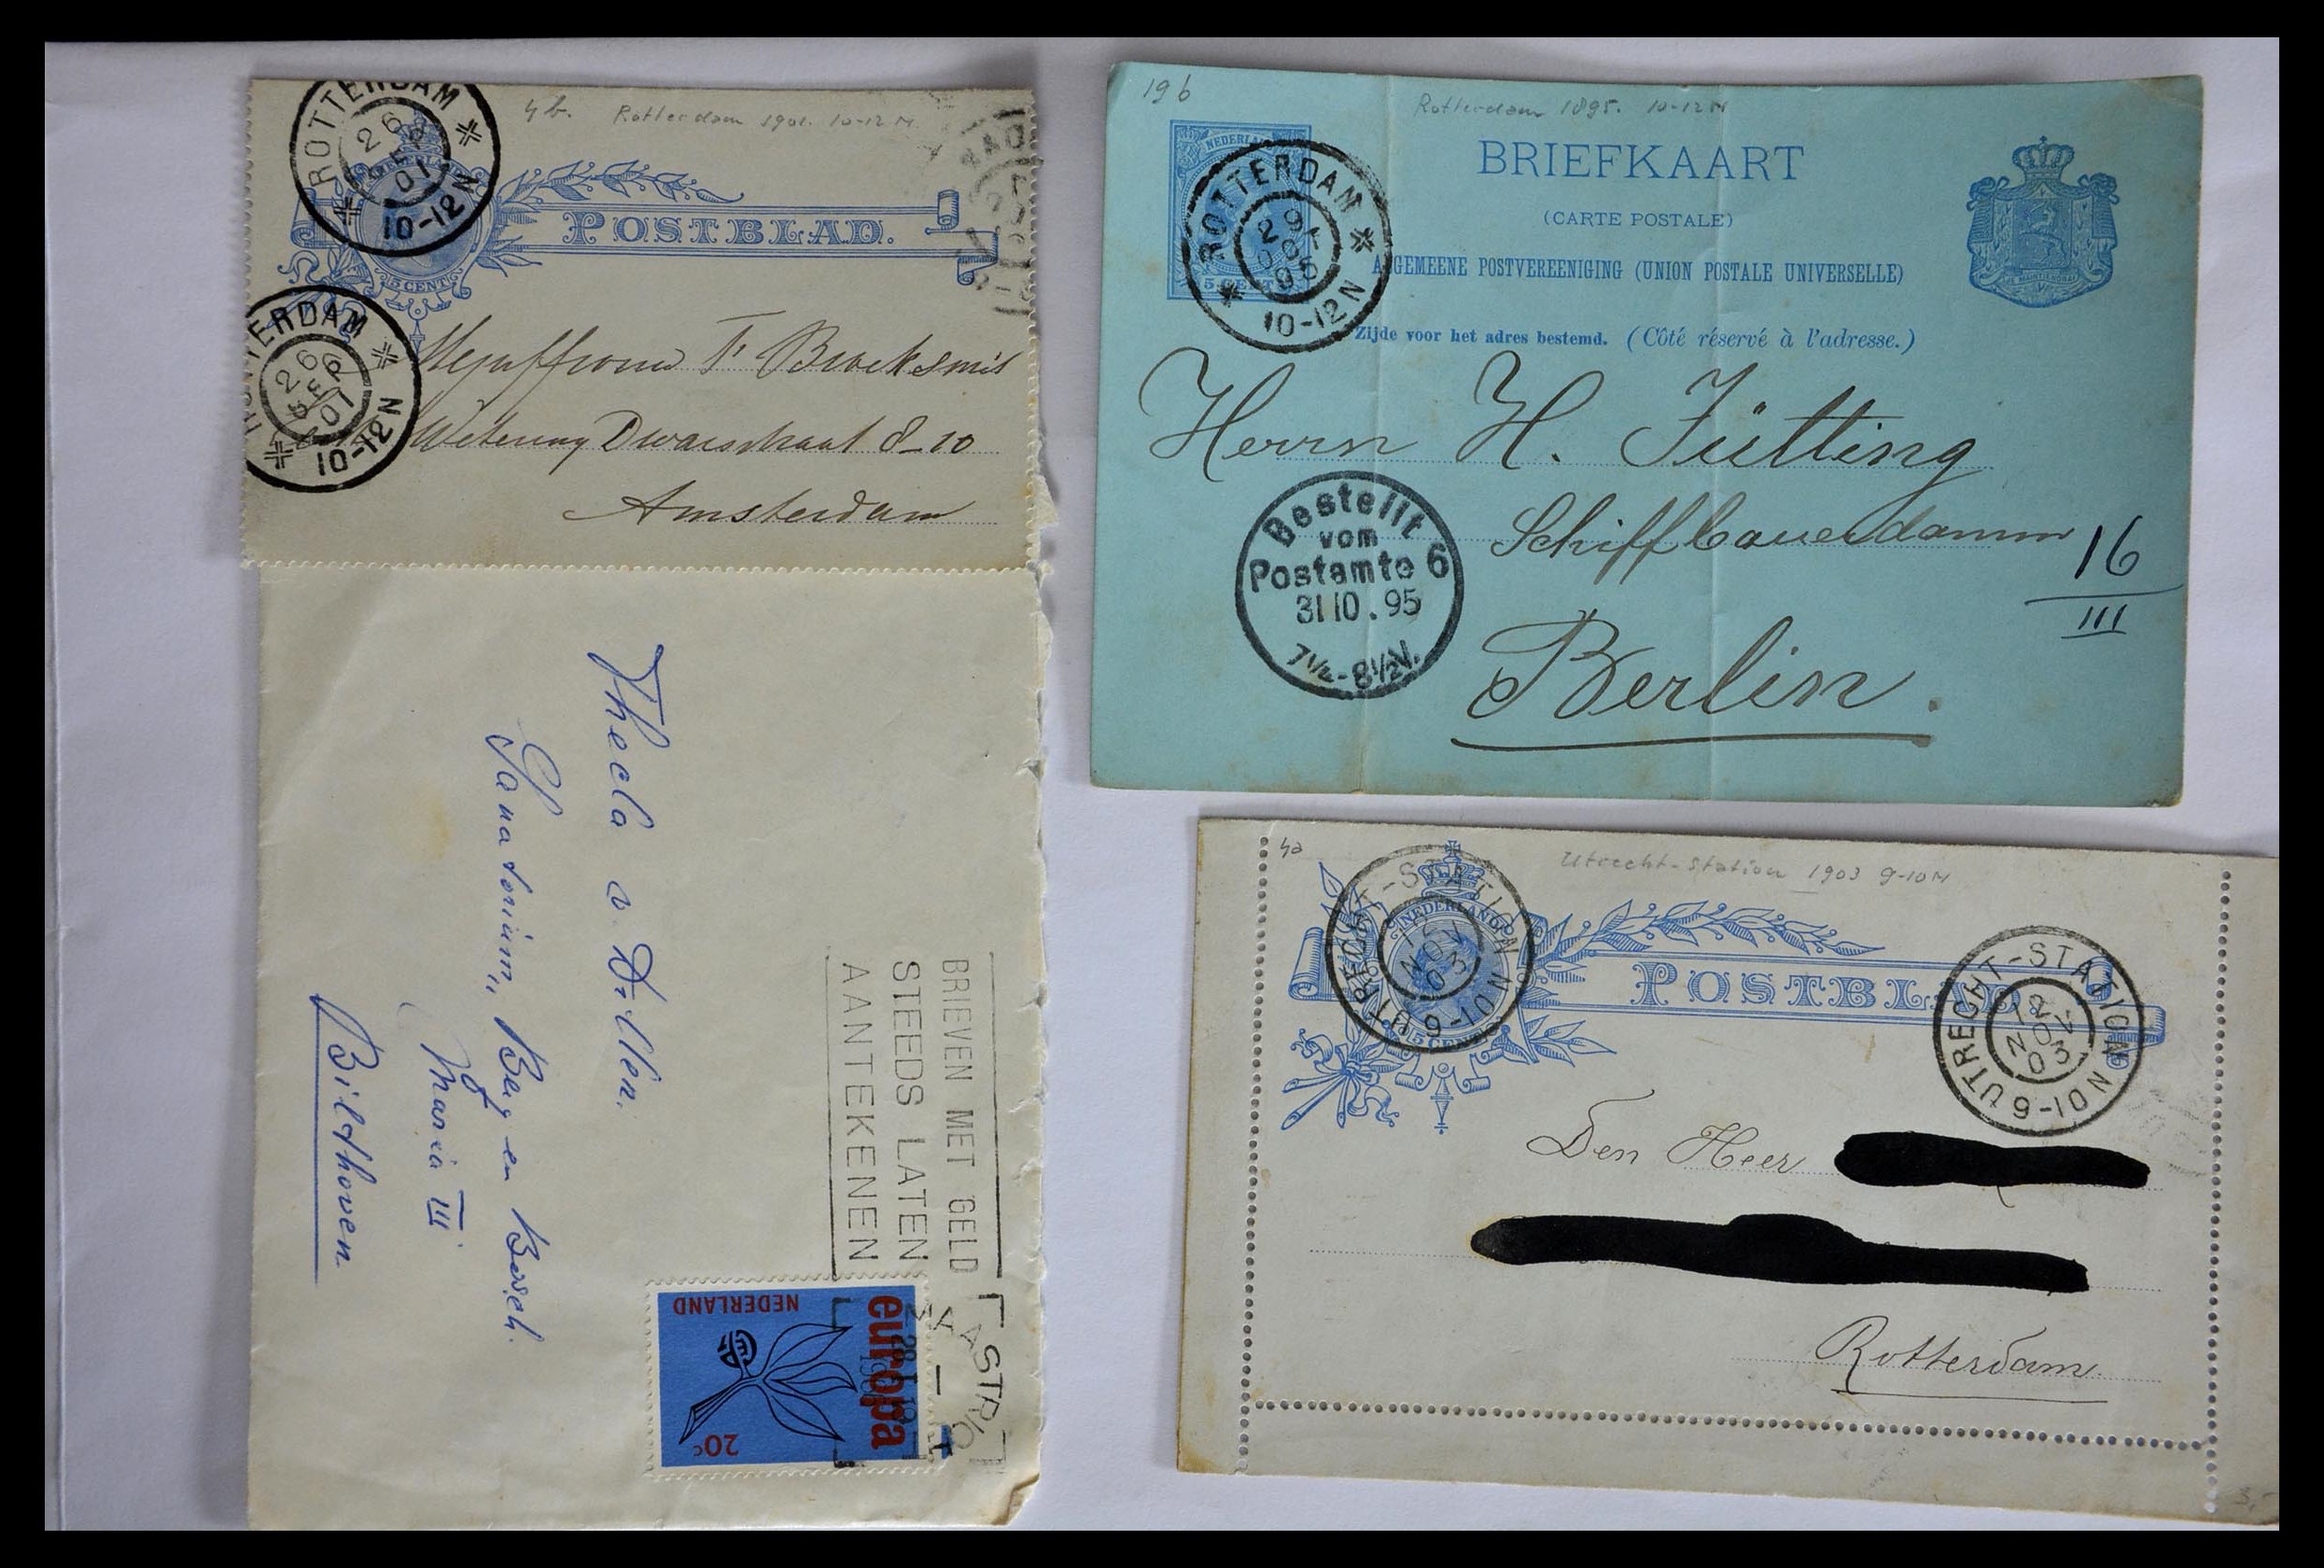 4b. Rotterdam 1901. 10-12 N
ROTTERDAM
26 SEP 01
10-12N
5 CENT
POSTBLAD.
ROTTERDAM
26 SEP 01
10-12N
Mejuffrouw F. Broeksmit
Wetering Dwarsstraat 8-10
Amsterdam
19b
Rotterdam 1895. 10-12 N
NEDERLAND
5 CENT
ROTTERDAM
29 OCT 95
10-12N
BRIEFKAART
(CARTE POSTALE)
ALGEMEENE POSTVEREENIGING (UNION POSTALE UNIVERSELLE)
Zijde voor het adres bestemd. (Côté réservé à l'adresse.)
Herrn H. Jütting
Schiffbauerdamm 16
III
Berlin.
Bestellt
vom
Postamte 6
31 10. 95
7½-8½V.
BRIEVEN MET GELD
STEEDS LATEN
AANTEKENEN
europa
NEDERLAND
CEPT
20c
Thecla v Dillen.
Sanatorium, Berg en Bosch.
Maria III
Bilthoven
4a
Utrecht-Station 1903 9-10 N
UTRECHT-STATION
12 NOV 03
9-10N
NEDERLAND
5 CENT
POSTBLAD.
UTRECHT-STATION
12 NOV 03
9-10N
Den Heer
Rotterdam.
3,-